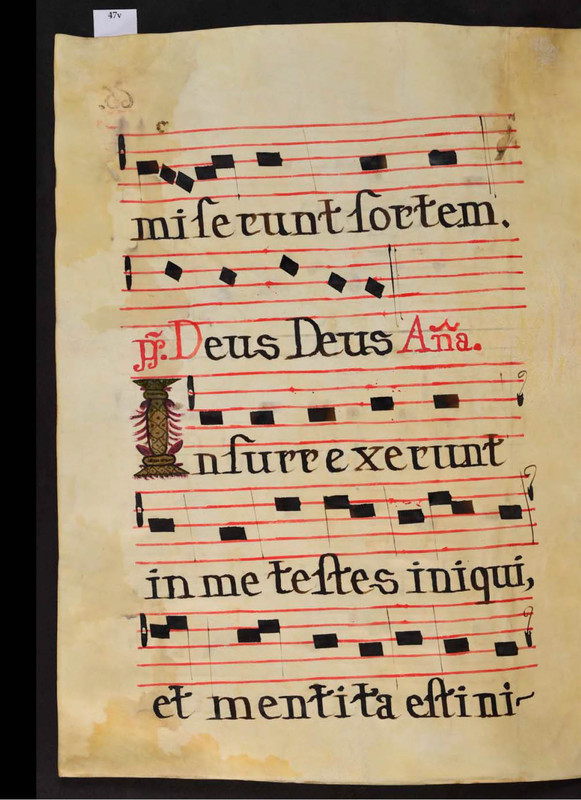 47v
miſerunt ſortem.
p̃s. Deus Deus Añã.
Inſurrexerunt
in me teſtes iniqui,
et mentita eſt ini~